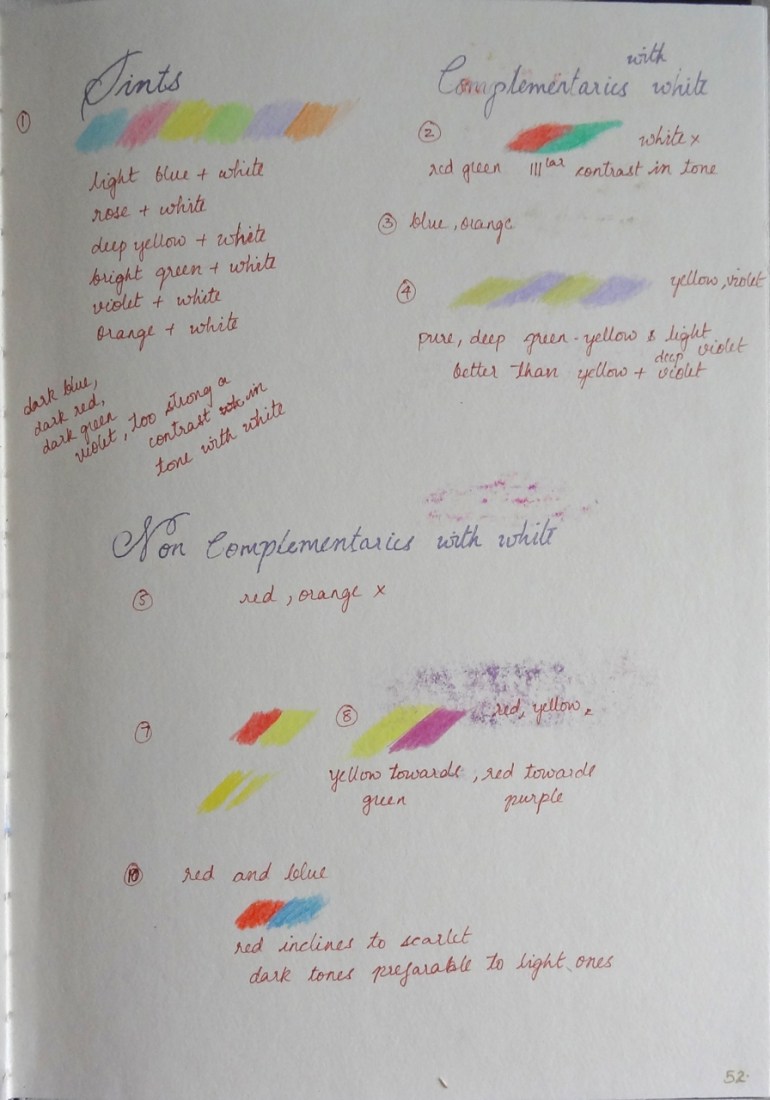 Tints
①
light blue + white
rose + white
deep yellow + white
bright green + white
violet + white
orange + white
dark blue,
dark red,
dark green
violet, too strong a
contrast in
tone with white
with
Complementaries white
② white x
red green lllar contrast in tone
③ blue, orange
④ yellow, violet
pure, deep green-yellow & light violet
better than yellow + deep violet
Non Complementaries with white
⑤ red, orange x
⑦
⑧ red, yellow
yellow towards, red towards
green purple
⑩ red and blue
red inclines to scarlet
dark tones prefarable to light ones
52.